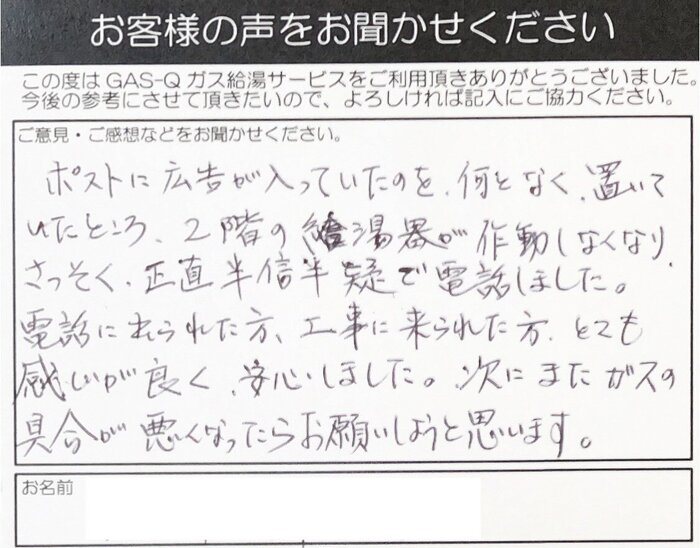 お客様の声をお聞かせください
この度はGAS-Qガス給湯サービスをご利用頂きありがとうございました。
今後の参考にさせて頂きたいので、よろしければ記入にご協力ください。
ご意見・ご感想などをお聞かせください。
ポストに広告が入っていたのを、何となく、置いて
いたところ、2階の給湯器が作動しなくなり、
さっそく、正直半信半疑で電話しました。
電話に出られた方、工事に来られた方、とても
感じが良く、安心しました。次にまたガスの
具合が悪くなったらお願いしようと思います。
お名前